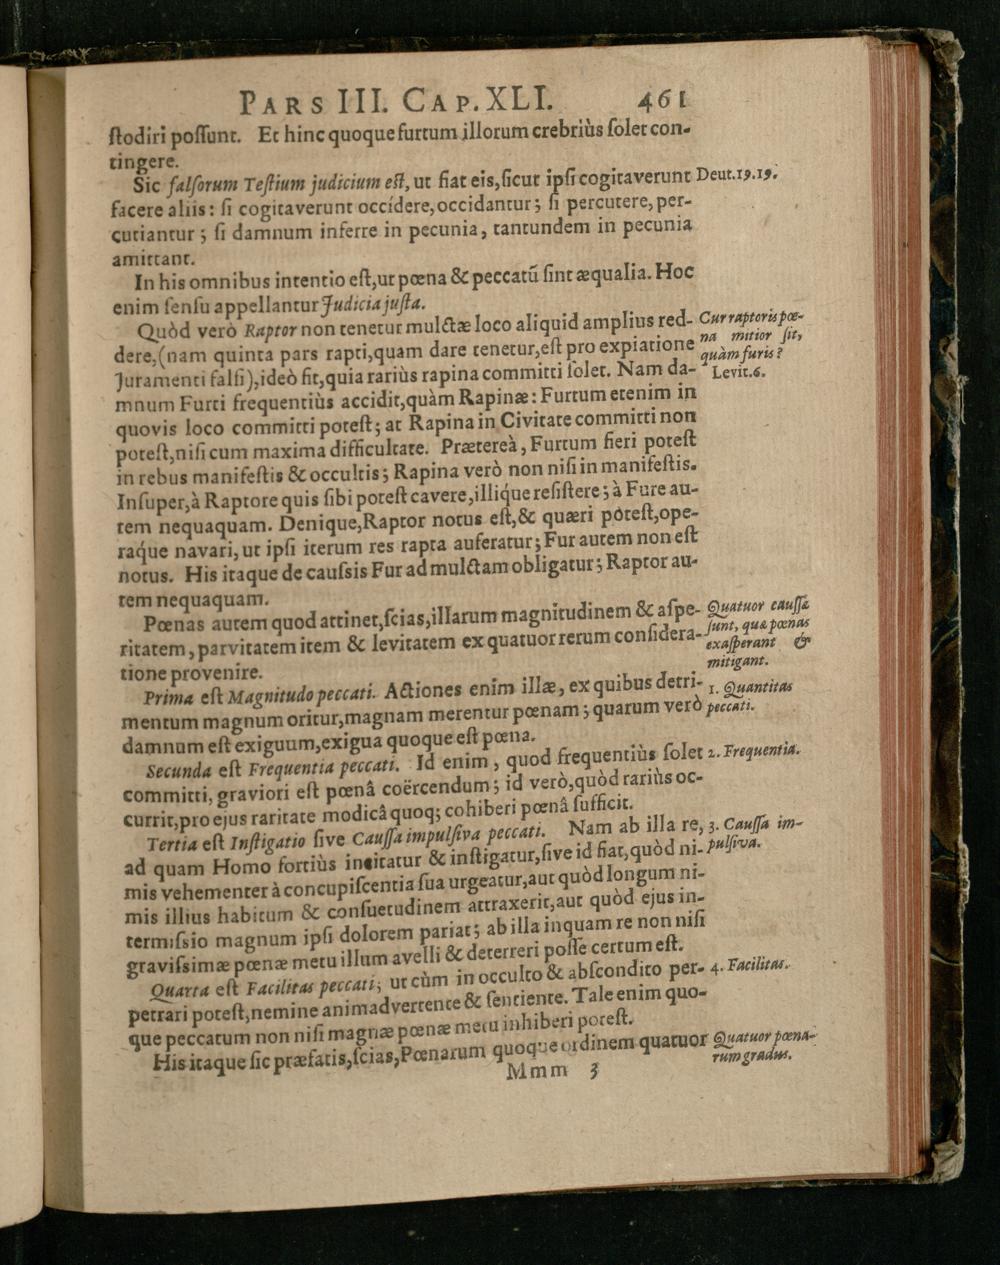 PARS III. CAP. XLI. 461
ſtodiri poſſunt. Et hinc quoque furtum illorum crebriùs ſolet con-
tingere.
Sic falſorum Teſtium judicium eſt, ut fiat eis, ſicut ipſi cogitaverunt Deut. 19. 19.
facere aliis: ſi cogitaverunt occídere, occidantur; ſi percutere, per-
cutiantur; ſi damnum inferre in pecunia, tantundem in pecunia
amittant.
In his omnibus intentio eſt, ut pœna & peccatũ ſint æqualia. Hoc
enim ſenſu appellantur Judicia juſta.
Quòd verò Raptor non tenetur mulctæ loco aliquid amplius red- Cur raptoris pœ-
dere, (nam quinta pars rapti, quam dare tenetur, eſt pro expiatione na mitior ſit,
quàm furis?
Juramenti falſi), ideò fit, quia rariùs rapina committi ſolet. Nam da- Levit. 6.
mnum Furti frequentiùs accidit, quàm Rapinæ: Furtum etenim in
quovis loco committi poteſt; at Rapina in Civitate committi non
poteſt, niſi cum maxima difficultate. Prætereà, Furtum fieri poteſt
in rebus manifeſtis & occultis; Rapina verò non niſi in manifeſtis.
Inſuper, à Raptore quis ſibi poteſt cavere, illíque reſiſtere; à Fure au-
tem nequaquam. Denique, Raptor notus eſt, & quæri poteſt, ope-
ráque navari, ut ipſi iterum res rapta auferatur; Fur autem non eſt
notus. His itaque de cauſsis Fur ad mulctam obligatur; Raptor au-
tem nequaquam.
Pœnas autem quod attinet, ſcias, illarum magnitudinem & aſpe- Quatuor cauſſæ
ritatem, parvitatem item & levitatem ex quatuor rerum conſidera- ſunt, quæ pœnas
exaſperant &
tione provenire. mitigant.
Prima eſt Magnitudo peccati. Actiones enim illæ, ex quibus detri- 1. Quantitas
mentum magnum oritur, magnam merentur pœnam; quarum verò peccati.
damnum eſt exiguum, exigua quoque eſt pœna.
Secunda eſt Frequentia peccati. Id enim, quod frequentiùs ſolet 2. Frequentia.
committi, graviori eſt pœnâ coërcendum; id verò, quòd rariùs oc-
currit, pro ejus raritate modicâ quoq; cohiberi pœnâ ſufficit.
Tertia eſt Inſtigatio ſive Cauſſa impulſiva peccati. Nam ab illa re, 3. Cauſſa im-
ad quam Homo fortiùs incitatur & inſtigatur, ſive id fiat, quòd ni- pulſiva.
mis vehementer à concupiſcentia ſua urgeatur, aut quòd longum ni-
mis illius habitum & conſuetudinem attraxerit, aut quòd ejus in-
termiſsio magnum ipſi dolorem pariat; ab illa inquam re non niſi
graviſsimæ pœnæ metu illum avelli & deterreri poſſe certum eſt.
Quarta eſt Facilitas peccati; ut cùm in occulto & abſcondito per- 4. Facilitas.
petrari poteſt, nemine animadvertente & ſentiente. Tale enim quo-
que peccatum non niſi magnæ pœnæ metu inhiberi poteſt.
His itaque ſic præfatis, ſcias, Pœnarum quoque ordinem quatuor Quatuor pœna-
rum gradus.
Mmm 3